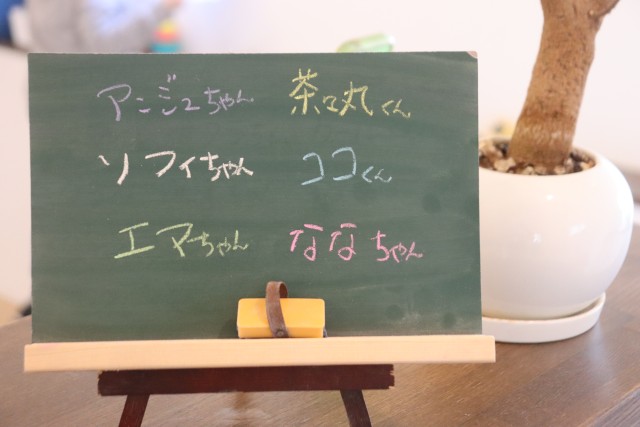 アンジュちゃん 茶々丸くん
ソフィちゃん ココくん
エマちゃん ななちゃん